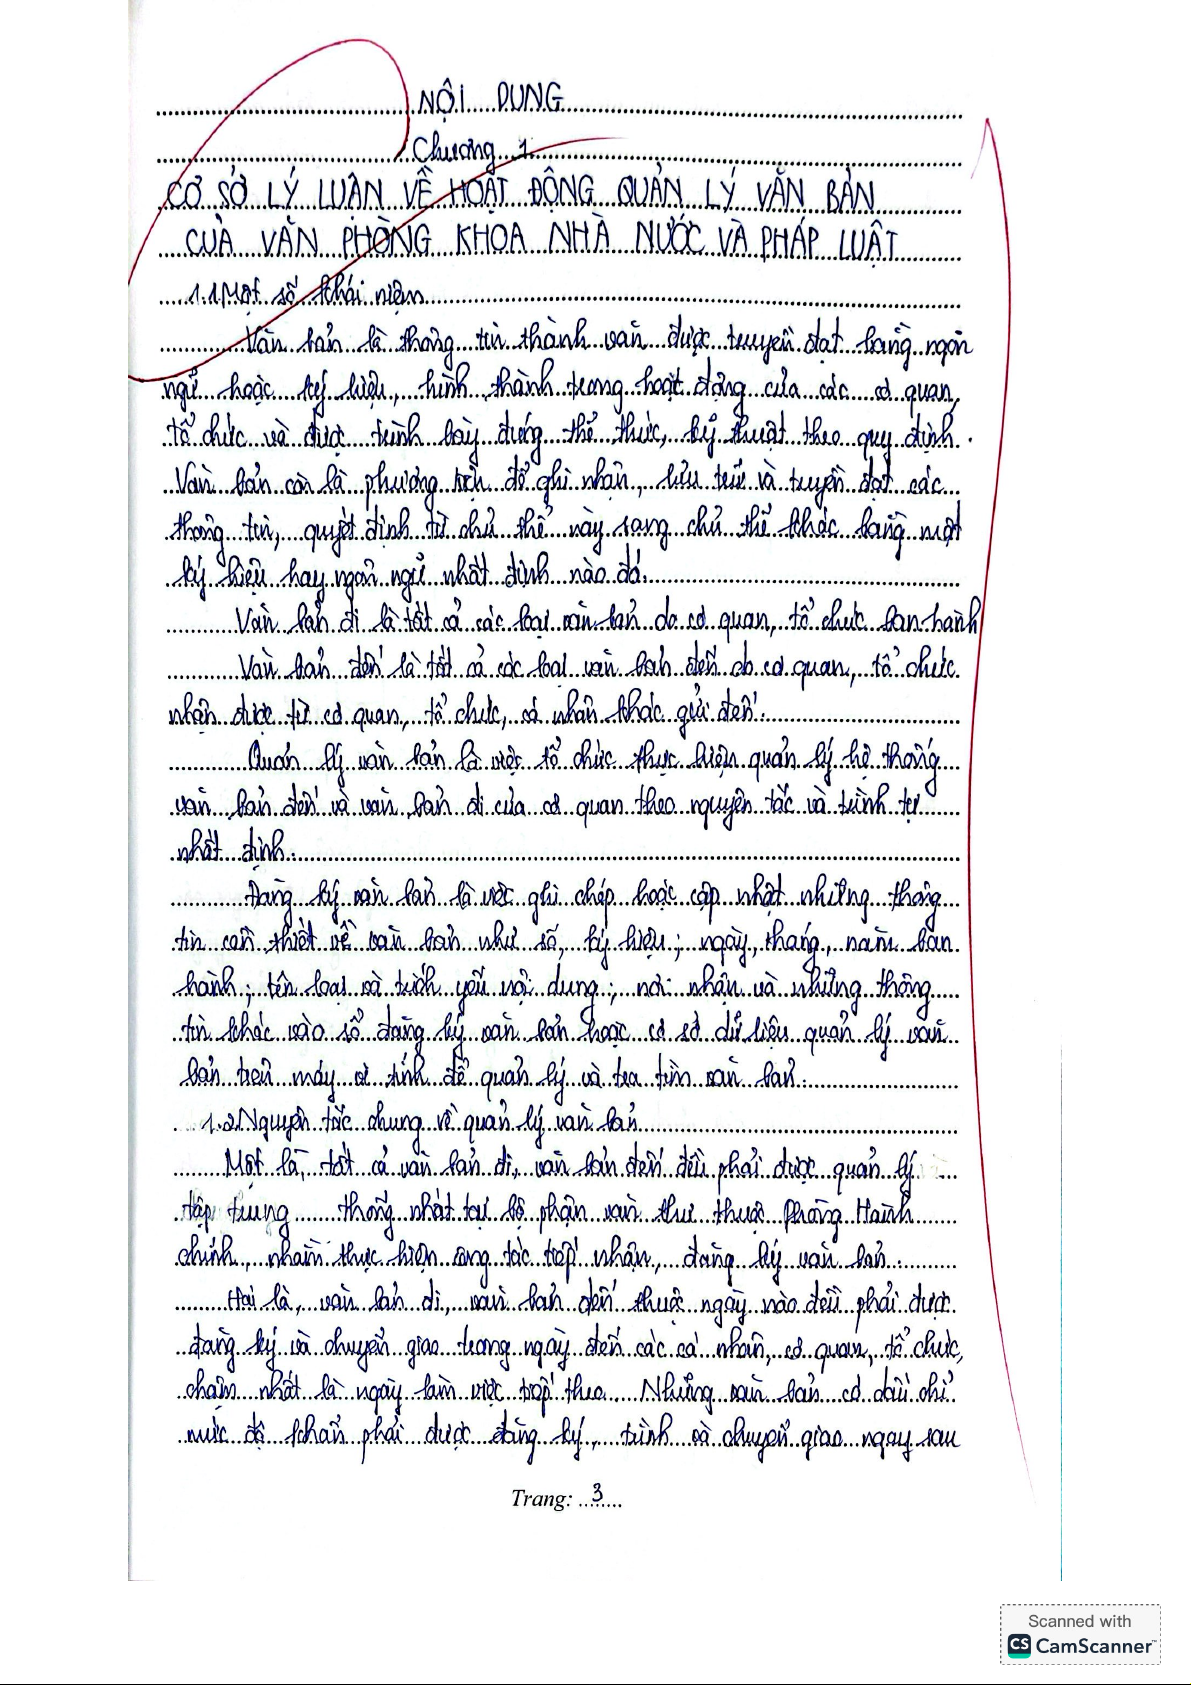 NỘI DUNG
Chương 1
CƠ SỞ LÝ LUẬN VỀ HOẠT ĐỘNG QUẢN LÝ VĂN BẢN
CỦA VĂN PHÒNG KHOA NHÀ NƯỚC VÀ PHÁP LUẬT
1.1. Một số khái niệm
Văn bản là thông tin thành văn được truyền đạt bằng ngôn
ngữ hoặc ký hiệu, hình thành trong hoạt động của các cơ quan,
tổ chức và được trình bày đúng thể thức, kỹ thuật theo quy định.
Văn bản còn là phương tiện để ghi nhận, lưu trữ và truyền đạt các
thông tin, quyết định từ chủ thể này sang chủ thể khác bằng một
ký hiệu hay ngôn ngữ nhất định nào đó.
Văn bản đi là tất cả các loại văn bản do cơ quan, tổ chức ban hành
Văn bản đến là tất cả các loại văn bản đến do cơ quan, tổ chức
nhận được từ cơ quan, tổ chức, cá nhân khác gửi đến.
Quản lý văn bản là việc tổ chức thực hiện quản lý hệ thống
văn bản đến và văn bản đi của cơ quan theo nguyên tắc và trình tự
nhất định.
Đăng ký văn bản là việc ghi chép hoặc cập nhật những thông
tin cần thiết về văn bản như số, ký hiệu; ngày, tháng, năm ban
hành; tên loại và trích yếu nội dung; nơi nhận và những thông
tin khác vào sổ đăng ký văn bản hoặc cơ sở dữ liệu quản lý văn
bản trên máy vi tính để quản lý và tra tìm văn bản.
1.2. Nguyên tắc chung về quản lý văn bản
Một là, tất cả văn bản đi, văn bản đến đều phải được quản lý
tập trung thống nhất tại bộ phận văn thư thuộc Phòng Hành
chính, nhằm thực hiện công tác tiếp nhận, đăng ký văn bản.
Hai là, văn bản đi, văn bản đến thuộc ngày nào đều phải được
đăng ký và chuyển giao trong ngày đến các cá nhân, cơ quan, tổ chức,
chậm nhất là ngày làm việc tiếp theo. Những văn bản có dấu chỉ
mức độ khẩn phải được đăng ký, trình và chuyển giao ngay sau
Trang: 3
Scanned with
CS CamScanner